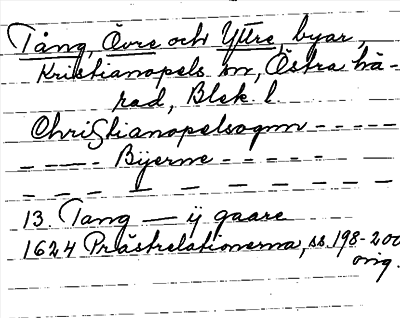 Tång, Övre och Yttre, byar,
Kristianopels sn, Östra hä-
rad, Blek. l.
Christianopelsognn - - - - -
- - - - Bÿerne - - - - -
- - - - - - - - - -
13. Tang — ij gaare
1624 Prästrelationerna, ss. 198-200
orig.